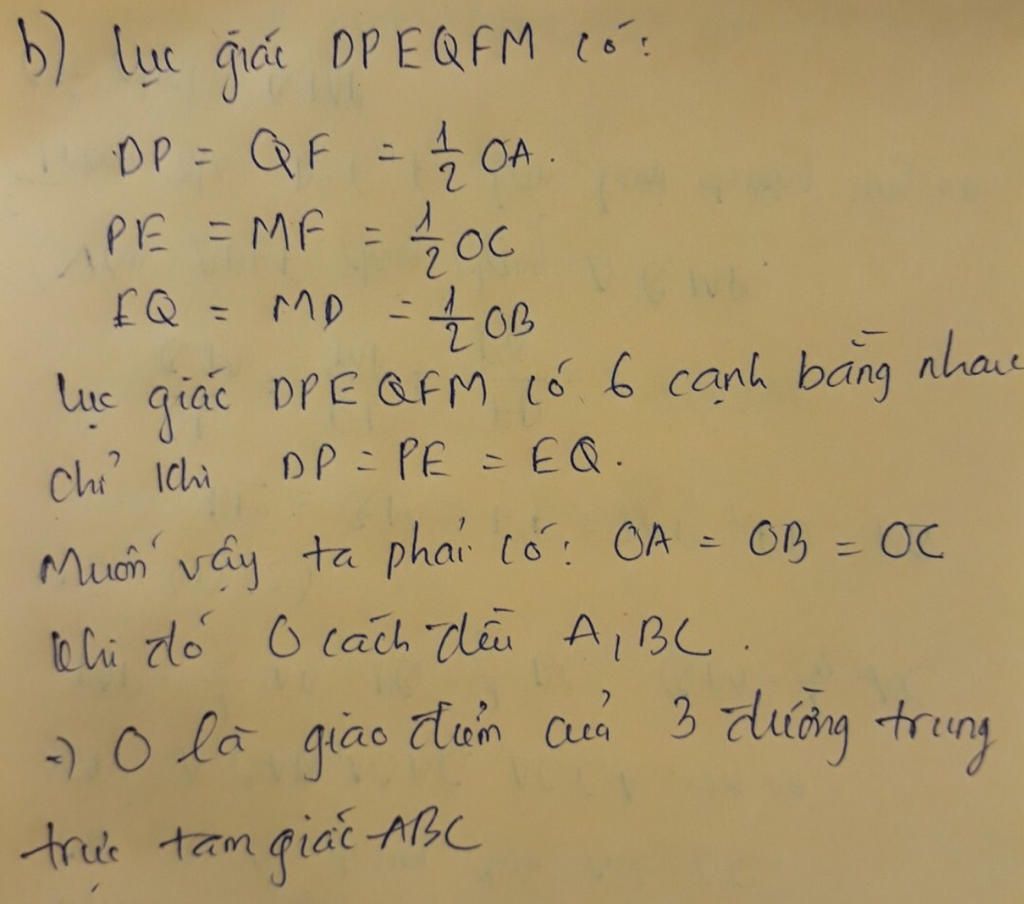 b) lục giác DPEQFM có:
DP = QF = 1/2 OA.
PE = MF = 1/2 OC
EQ = MD = 1/2 OB
lục giác DPEQFM có 6 cạnh bằng nhau
chỉ khi DP = PE = EQ.
Muốn vậy ta phải có: OA = OB = OC
khi đó O cách đều A, BC.
=) O là giao điểm của 3 đường trung
trực tam giác ABC